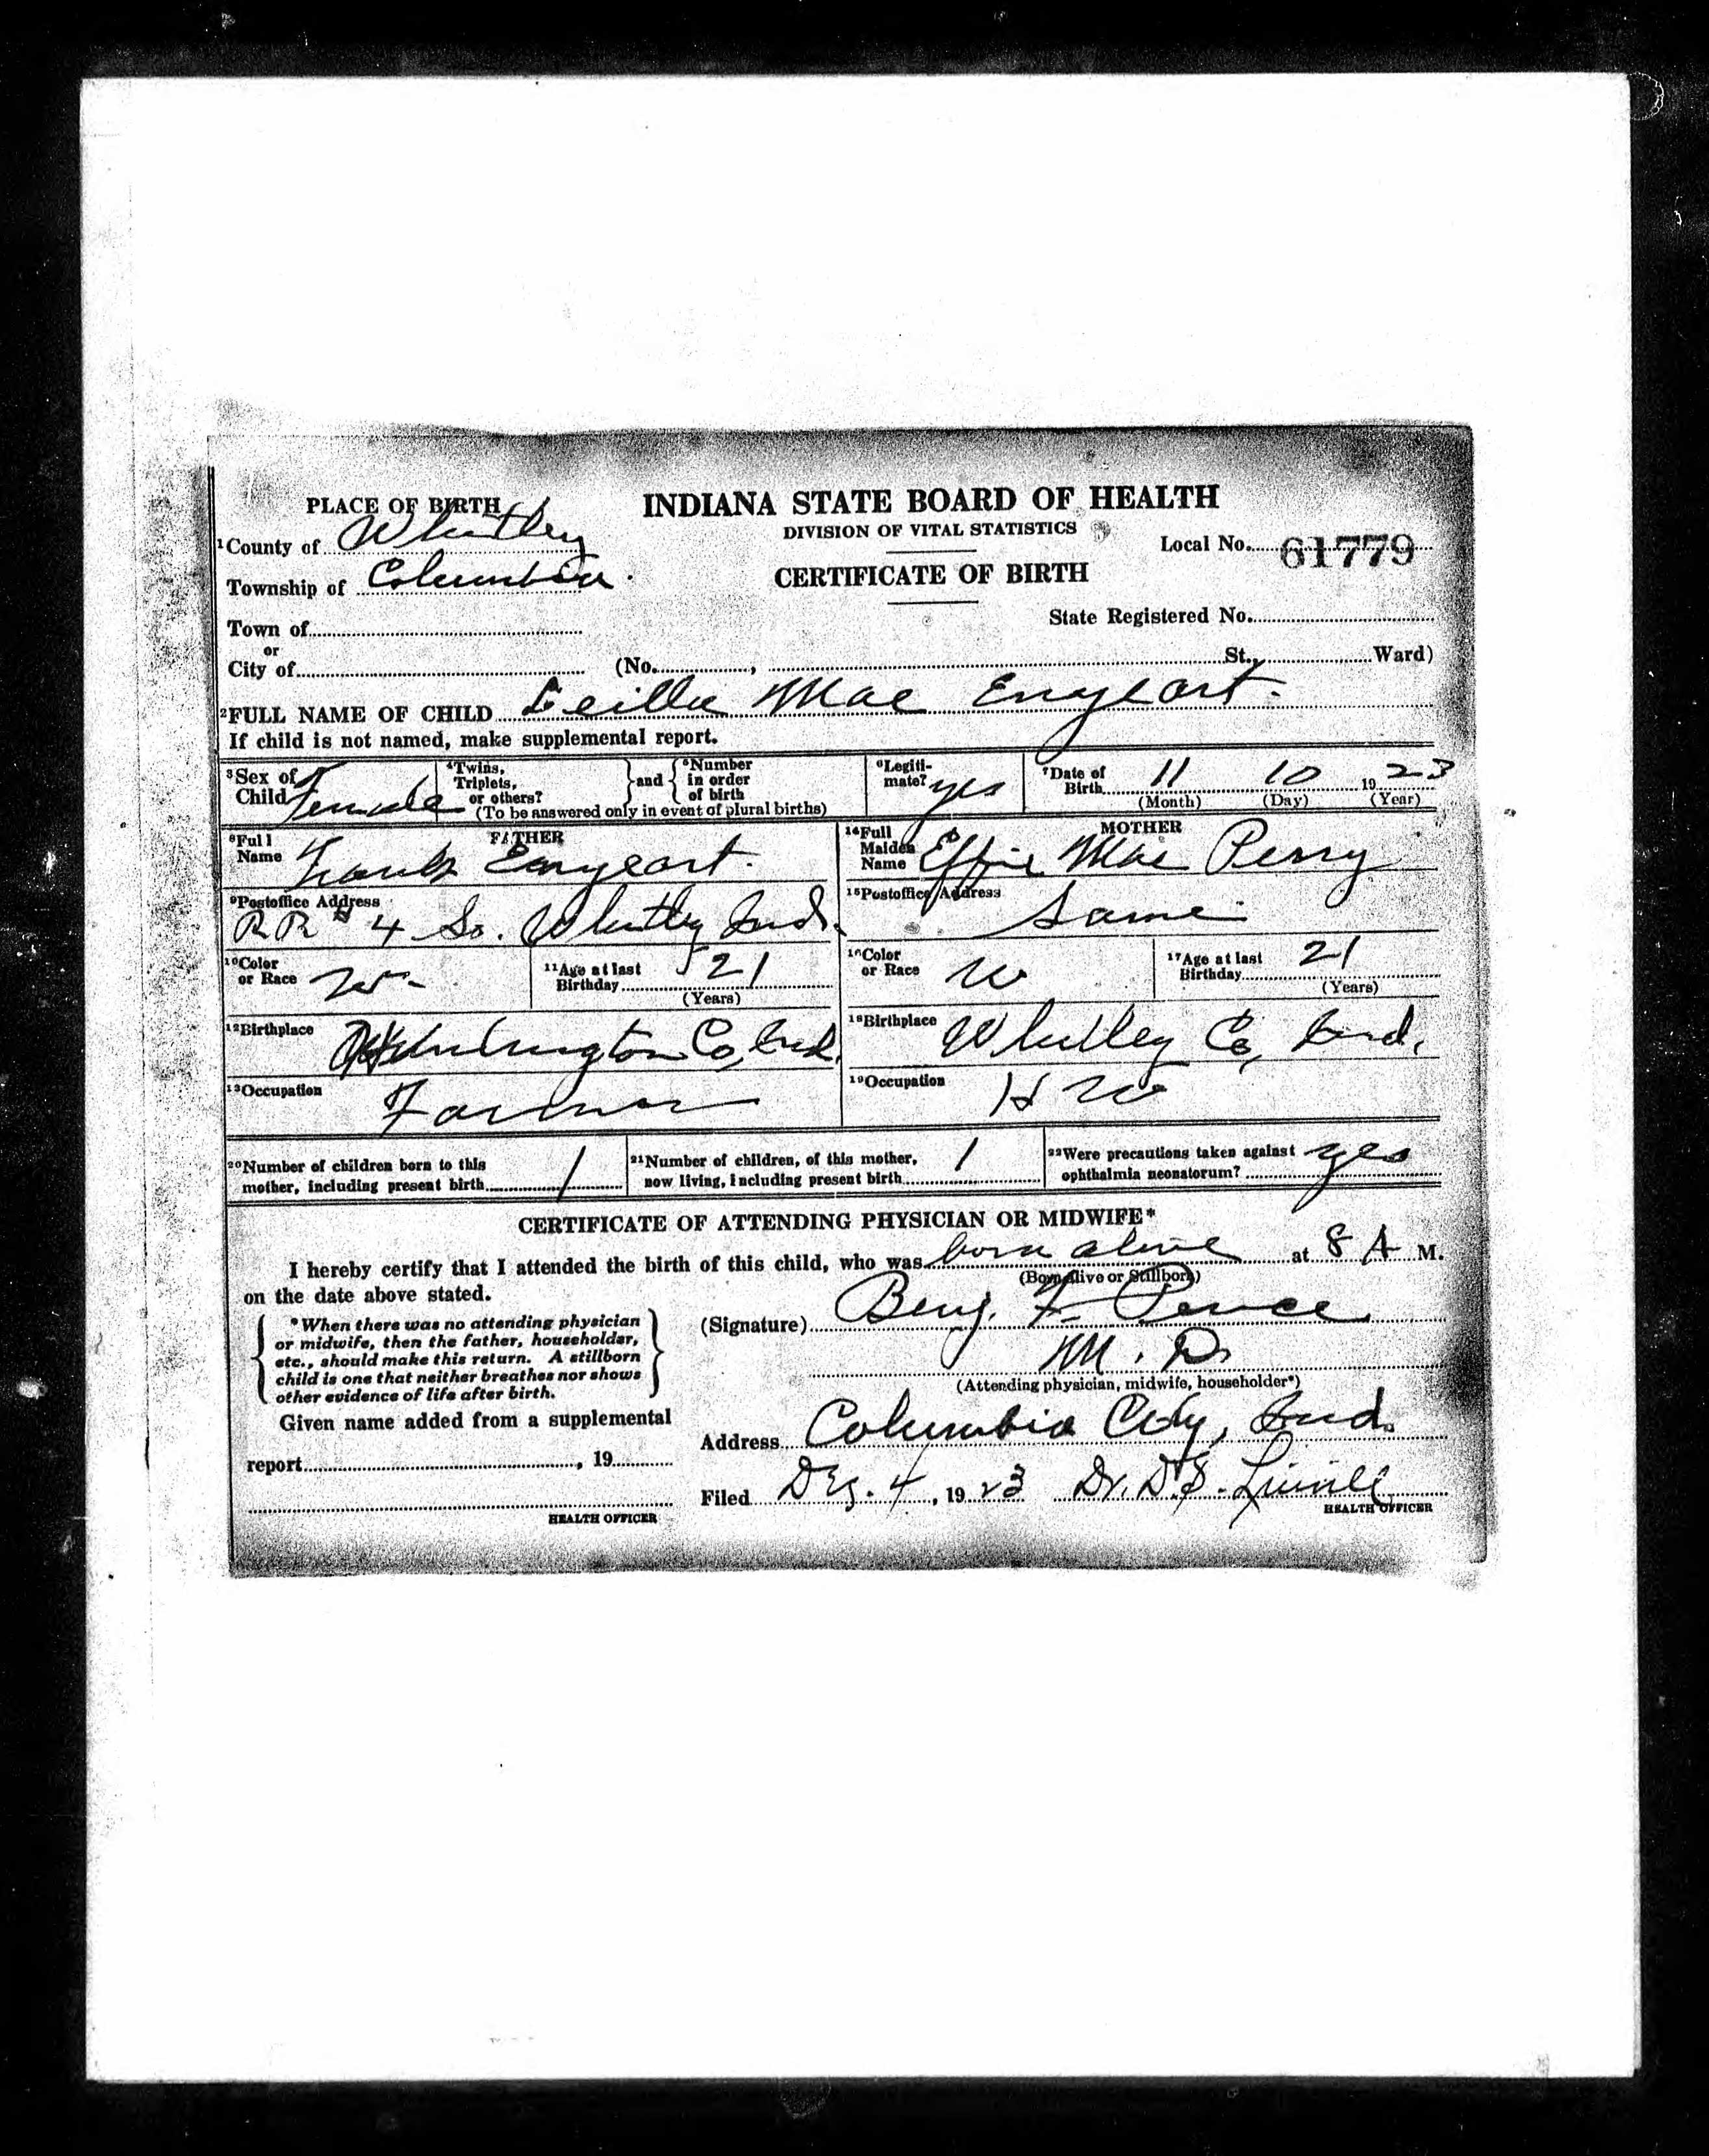 PLACE OF BIRTH
INDIANA STATE BOARD OF HEALTH
DIVISION OF VITAL STATISTICS
CERTIFICATE OF BIRTH
1 County of Whitley
Local No. 61779
Township of Columbia
State Registered No.
Town of
or
City of (No. , St., Ward)
2 FULL NAME OF CHILD Mae Enyeart.
If child is not named, make supplemental report.
3 Sex of Child Female
4 Twins, Triplets, or others? } and { 5 Number in order of birth
(To be answered only in event of plural births)
6 Legiti-mate? yes
7 Date of Birth 11 10 1923
(Month) (Day) (Year)
FATHER
8 Full Name Frank Enyeart.
9 Postoffice Address
RR # 4 So. Whitley Ind.
10 Color or Race W.
11 Age at last Birthday 21
(Years)
12 Birthplace Huntington Co, Ind.
13 Occupation Farmer
MOTHER
14 Full Maiden Name Effie Mae Perry
15 Postoffice Address
Same
16 Color or Race W
17 Age at last Birthday 21
(Years)
18 Birthplace Whitley Co, Ind.
19 Occupation H W
20 Number of children born to this mother, including present birth 1
21 Number of children, of this mother, now living, including present birth 1
22 Were precautions taken against ophthalmia neonatorum? yes
CERTIFICATE OF ATTENDING PHYSICIAN OR MIDWIFE*
I hereby certify that I attended the birth of this child, who was born alive at 8 A M.
(Born alive or Stillborn)
on the date above stated.
*When there was no attending physician
or midwife, then the father, householder,
etc., should make this return. A stillborn
child is one that neither breathes nor shows
other evidence of life after birth.
(Signature) Benj. F. Pence
M. D.
(Attending physician, midwife, householder*)
Given name added from a supplemental
report , 19
HEALTH OFFICER
Address Columbia City, Ind.
Filed Dec. 4, 1923 Dr. D. S. Linvill
HEALTH OFFICER